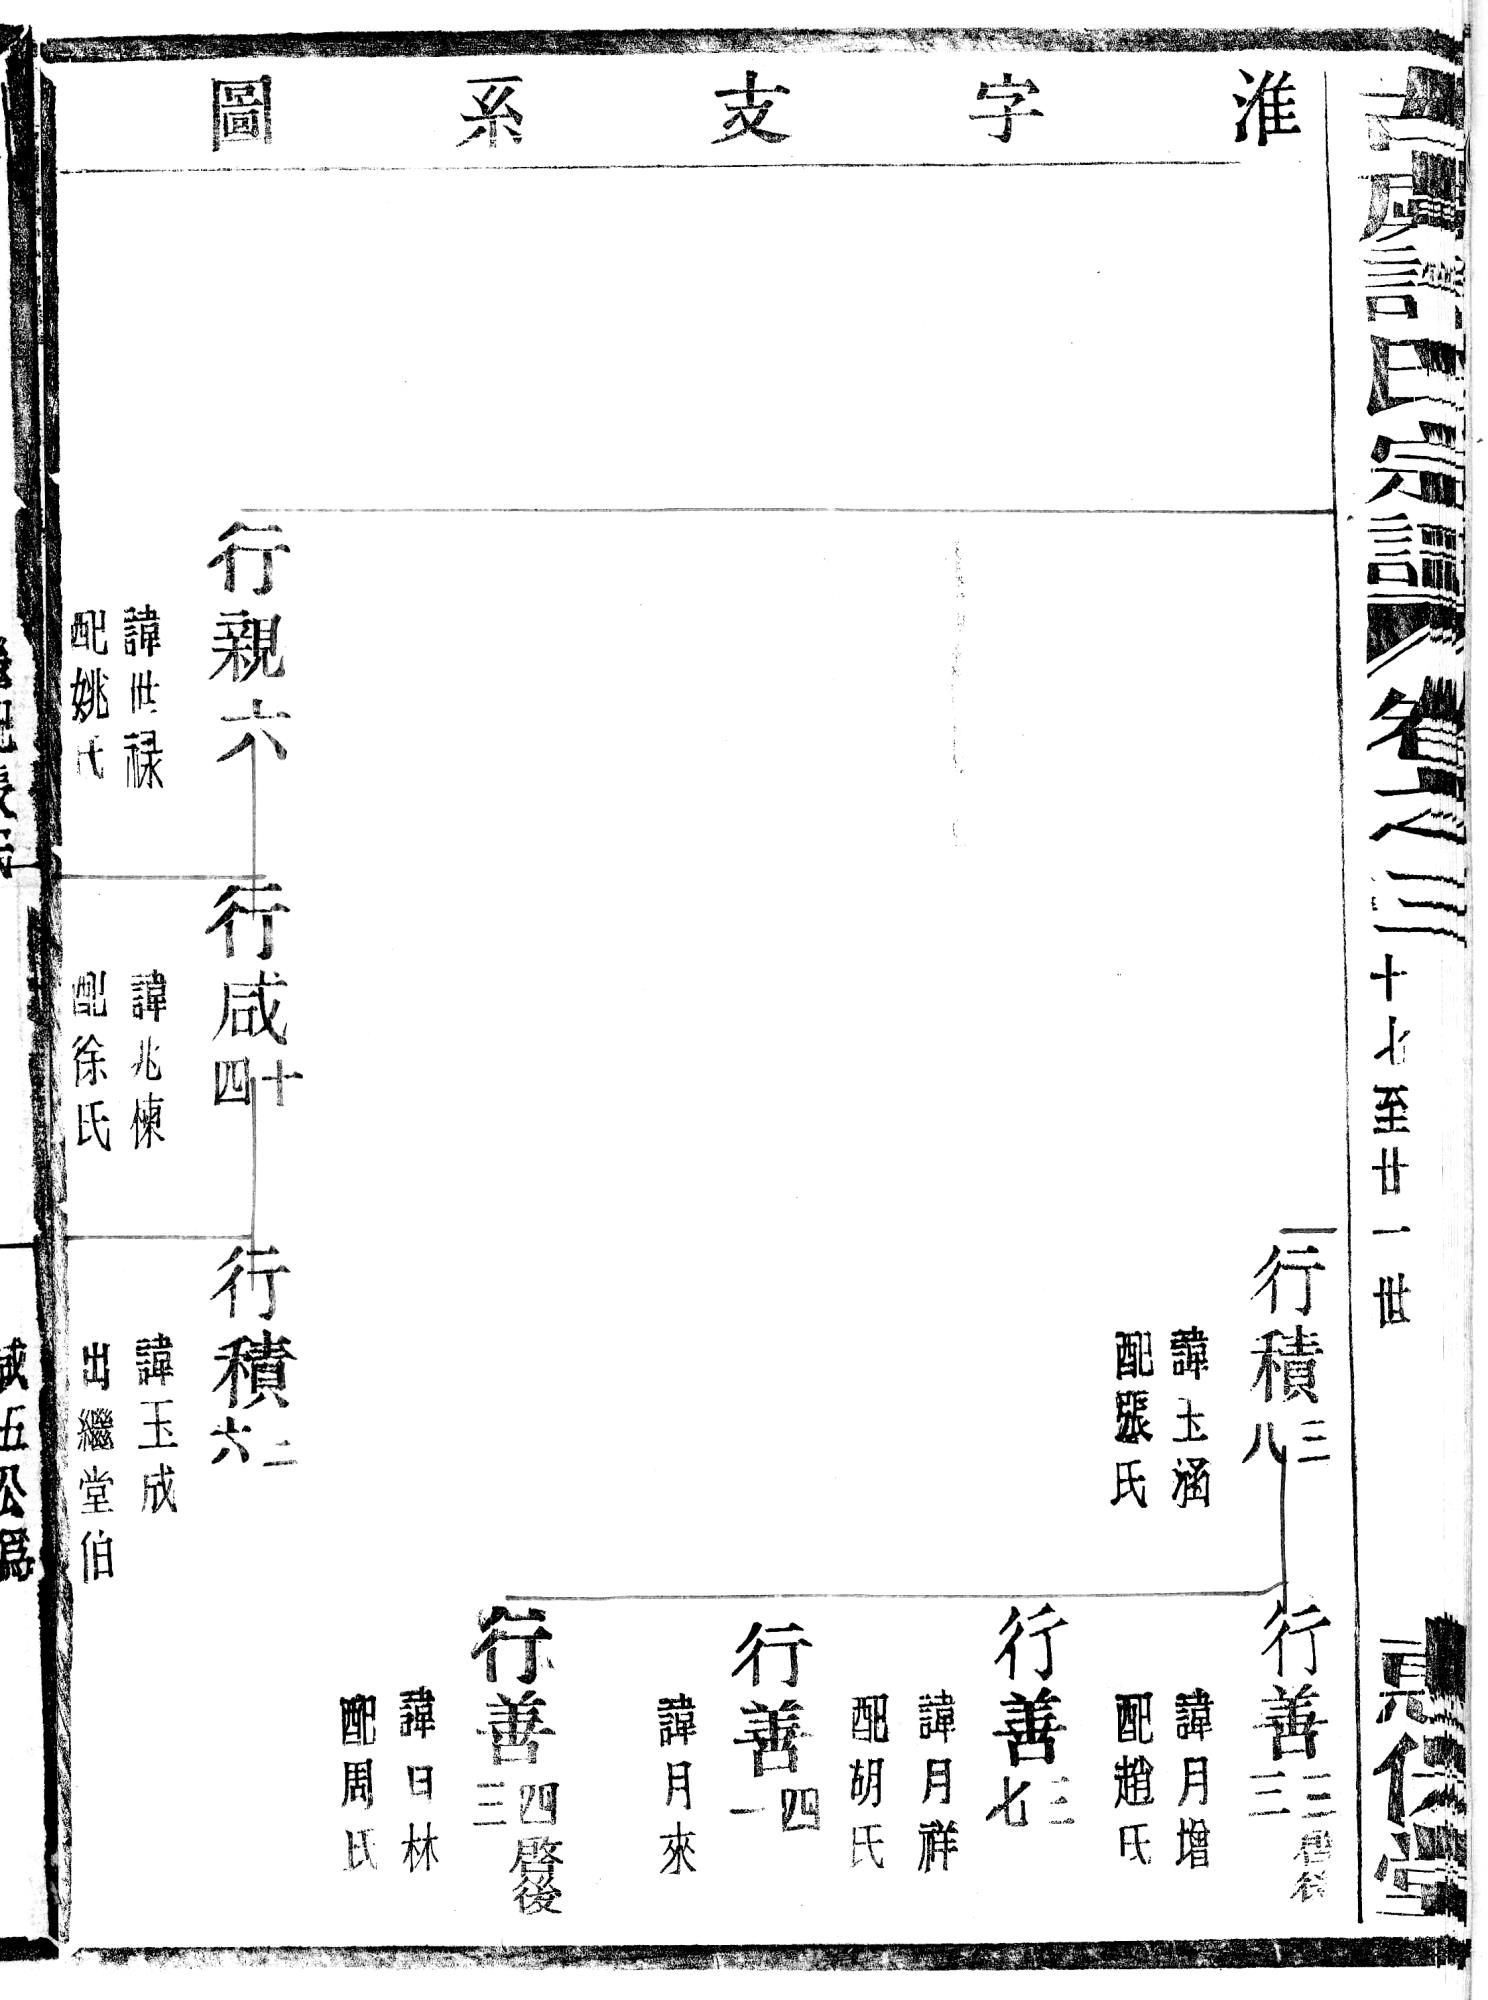 淮字支系圖
許氏宗譜
卷之三
十七至廿一世
行積三八
諱玉涵
配張氏
行善三三啓後
諱月增
配趙氏
行善三七
諱月祥
配胡氏
行善四一
諱月來
行善四三啓後
諱日林
配周氏
行親六
諱世禄
配姚氏
行咸十四
諱兆棟
配徐氏
行積二六
諱玉成
出繼堂伯
咸五公爲